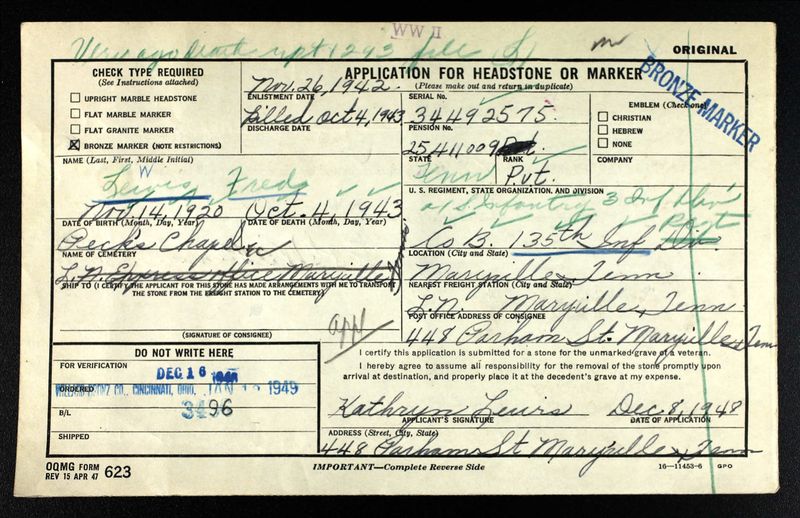 WW II
ORIGINAL
CHECK TYPE REQUIRED
(See Instructions attached)
UPRIGHT MARBLE HEADSTONE
FLAT MARBLE MARKER
FLAT GRANITE MARKER
BRONZE MARKER (NOTE RESTRICTIONS)
Nov. 26, 1942.
ENLISTMENT DATE
Killed Oct 4, 1943
DISCHARGE DATE
APPLICATION FOR HEADSTONE OR MARKER
(Please make out and return in duplicate)
SERIAL No.
34492575.
PENSION No.
25411009
EMBLEM (Check one)
CHRISTIAN
HEBREW
NONE
BRONZE MARKER
STATE
Tenn
RANK
Pvt.
COMPANY
NAME (Last, First, Middle Initial)
Lewis Fred W
U. S. REGIMENT, STATE ORGANIZATION, AND DIVISION
Infantry 3 Inf Div
Co B. 135th Inf Div.
Nov. 14, 1920
DATE OF BIRTH (Month, Day, Year)
Oct. 4, 1943
DATE OF DEATH (Month, Day, Year)
Pecks Chapel
NAME OF CEMETERY
LOCATION (City and State)
Maryville, Tenn
L. N. Express office Maryville
SHIP TO (I CERTIFY THE APPLICANT FOR THIS STONE HAS MADE ARRANGEMENTS WITH ME TO TRANSPORT
THE STONE FROM THE FREIGHT STATION TO THE CEMETERY)
NEAREST FREIGHT STATION (City and State)
L. N. Maryville, Tenn
POST OFFICE ADDRESS OF CONSIGNEE
448 Parham St. Maryville Tenn
(SIGNATURE OF CONSIGNEE)
appl
DO NOT WRITE HERE
FOR VERIFICATION
DEC 16
ORDERED
CINCINNATI, OHIO, JAN 1949
B/L
3496
SHIPPED
I certify this application is submitted for a stone for the unmarked grave of a veteran.
I hereby agree to assume all responsibility for the removal of the stone promptly upon
arrival at destination, and properly place it at the decedent's grave at my expense.
Kathryn Lewis Dec. 8, 1948
APPLICANT'S SIGNATURE
DATE OF APPLICATION
ADDRESS (Street, City, State)
448 Parham St Maryville, Tenn
OQMG FORM
REV 15 APR 47 623
IMPORTANT—Complete Reverse Side
16—11453-6 GPO